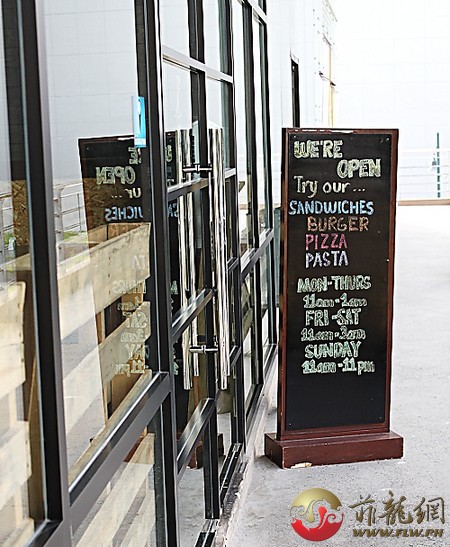 WE'RE
OPEN
Try our...
SANDWICHES
BURGER
PIZZA
PASTA
MON-THURS
11am-1am
FRI-SAT
11am-3am
SUNDAY
11am-11pm
OPEN
our...
WICHES
菲龍網
WWW.FLW.PH